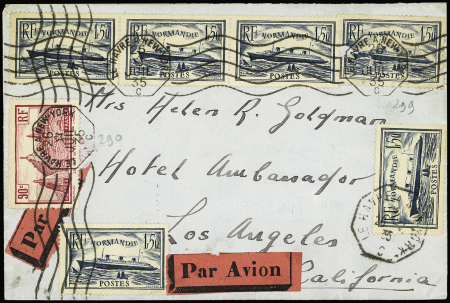 RF NORMANDIE 1F50 POSTES
RF NORMANDIE 1F50 POSTES
RF NORMANDIE 1F50 POSTES
RF NORMANDIE 1F50 POSTES
LE HAVRE A NEW-YORK
35
299
Mrs Helen R. Goldman
290
90c
Hotel Ambassador
RF NORMANDIE 1F50 POSTES
Par
Los Angeles
RF NORMANDIE 1F50 POSTES
Par Avion
California